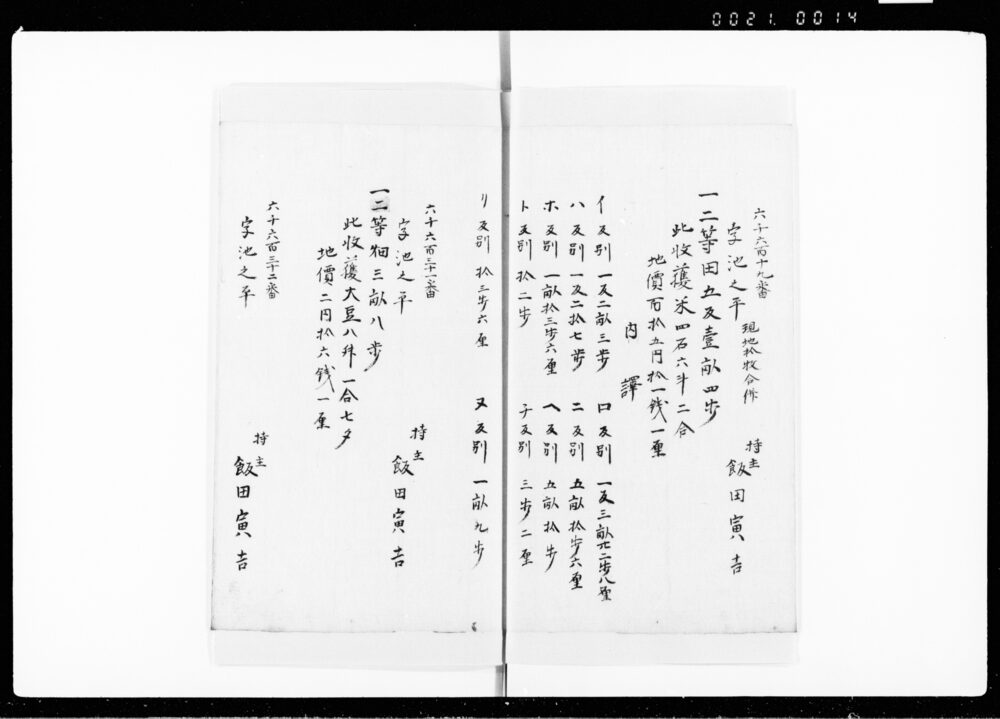 0021.0014
六千六百十九番
字池之平 現地拾枚合併
持主 飯田寅吉
一二等田五反壹畝四歩
此收護米四石六斗二合
地價百拾五円拾一銭一厘
内譯
イ 反別 一反二畝三歩 ロ 反別 一反三畝廿二歩八厘
ハ 反別 一反二拾七歩 ニ 反別 五畝拾歩六厘
ホ 反別 一畝拾三歩六厘 ヘ 反別 五畝拾歩
ト 反別 拾二歩 チ 反別 三歩二厘
リ 反別 拾三歩六厘 ヌ 反別 一畝九歩
六千六百三十一番
字池之平
持主 飯田寅吉
一二等畑三畝八歩
此收護大豆八舛一合七夕
地價二円拾六銭一厘
六千六百三十二番
字池之平
持主 飯田寅吉